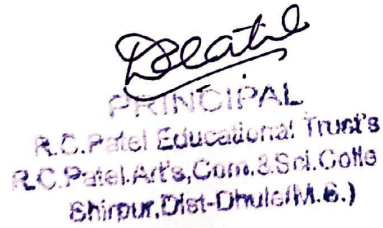 PRINCIPAL
R.C.Patel Educational Trust's
R.C.Patel.Art's,Com.&Sci.Colle
Shirpur,Dist-Dhule(M.S.)